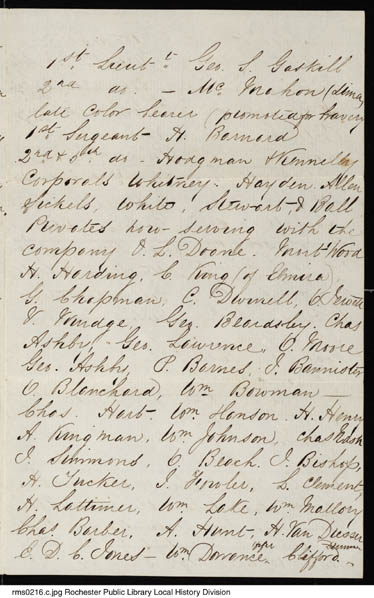 1st Lieut t. Geo. S. Gaskill
2nd do. - Mc Mahon (
late Color bearer (promoted for bravery
1st Sergeant H. Barnard)
2nd & 3rd do - Hodgman & Kennelly
Corporals Whitney - Hayden Allen
Sickels, White, Stewart, & Ball
Privates now serving with the
company O. L. Doane. Wood
H. Harding, C. King (of Elmira)
G. Chapman, C. Dwinell,
V. Geo. Beardsley, Chas
Ashby - Geo. Lawrence, O. Moore
Geo. Ashby, P. Barnes, J. Bannister
O. Blanchard, Wm Bowman -
Chas. Hart - Wm Hanson. H. Henry
A. Kingman, Wm Johnson, Chas
J. Simmons, O. Beach. J. Bishop,
H. Tucker, J. Fowler, L. Clement,
H. Lattimer, Wm Lake, Wm Mallory
Chas. Barber, A. Hunt, H. Van Dusen
E. D. C. Jones - Wm Dorrance, Clifford
rms0216.c.jpg Rochester Public Library Local History Division